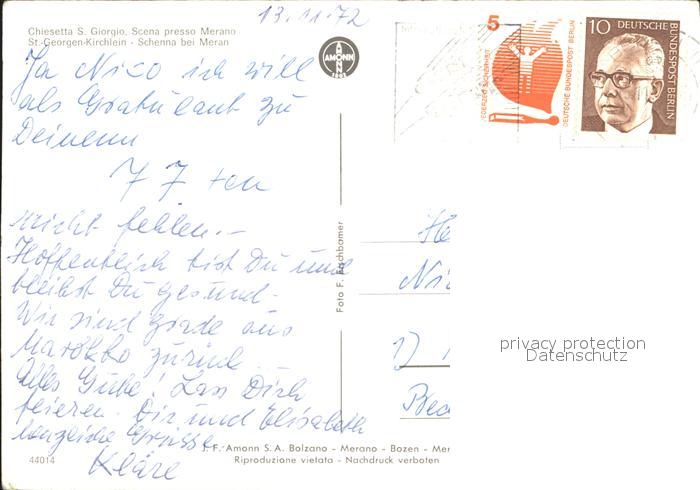 13.11.72
Chiesetta S. Giorgio, Scena presso Merano
St. Georgen-Kirchlein - Schenna bei Meran
AMONN
Ja Nico ich will
als Gratulant zu
Deinem
77 ten
nicht fehlen.-
Hoffentlich bist Du und
bleibst Du gesund.
Wir sind grade aus
Marokko zurück.
Alles Gute! Lass Dich
feiern. Dir und Elisabeth
Grüsse
Kläre
Foto F.
5
JEDERZEIT SICHERHEIT
DEUTSCHE BUNDESPOST BERLIN
10
DEUTSCHE BUNDESPOST BERLIN
He
Ni
1)
privacy protection
Datenschutz
J. F. Amonn S.A. Bolzano - Merano - Bozen - Mer
Riproduzione vietata - Nachdruck verboten
44014